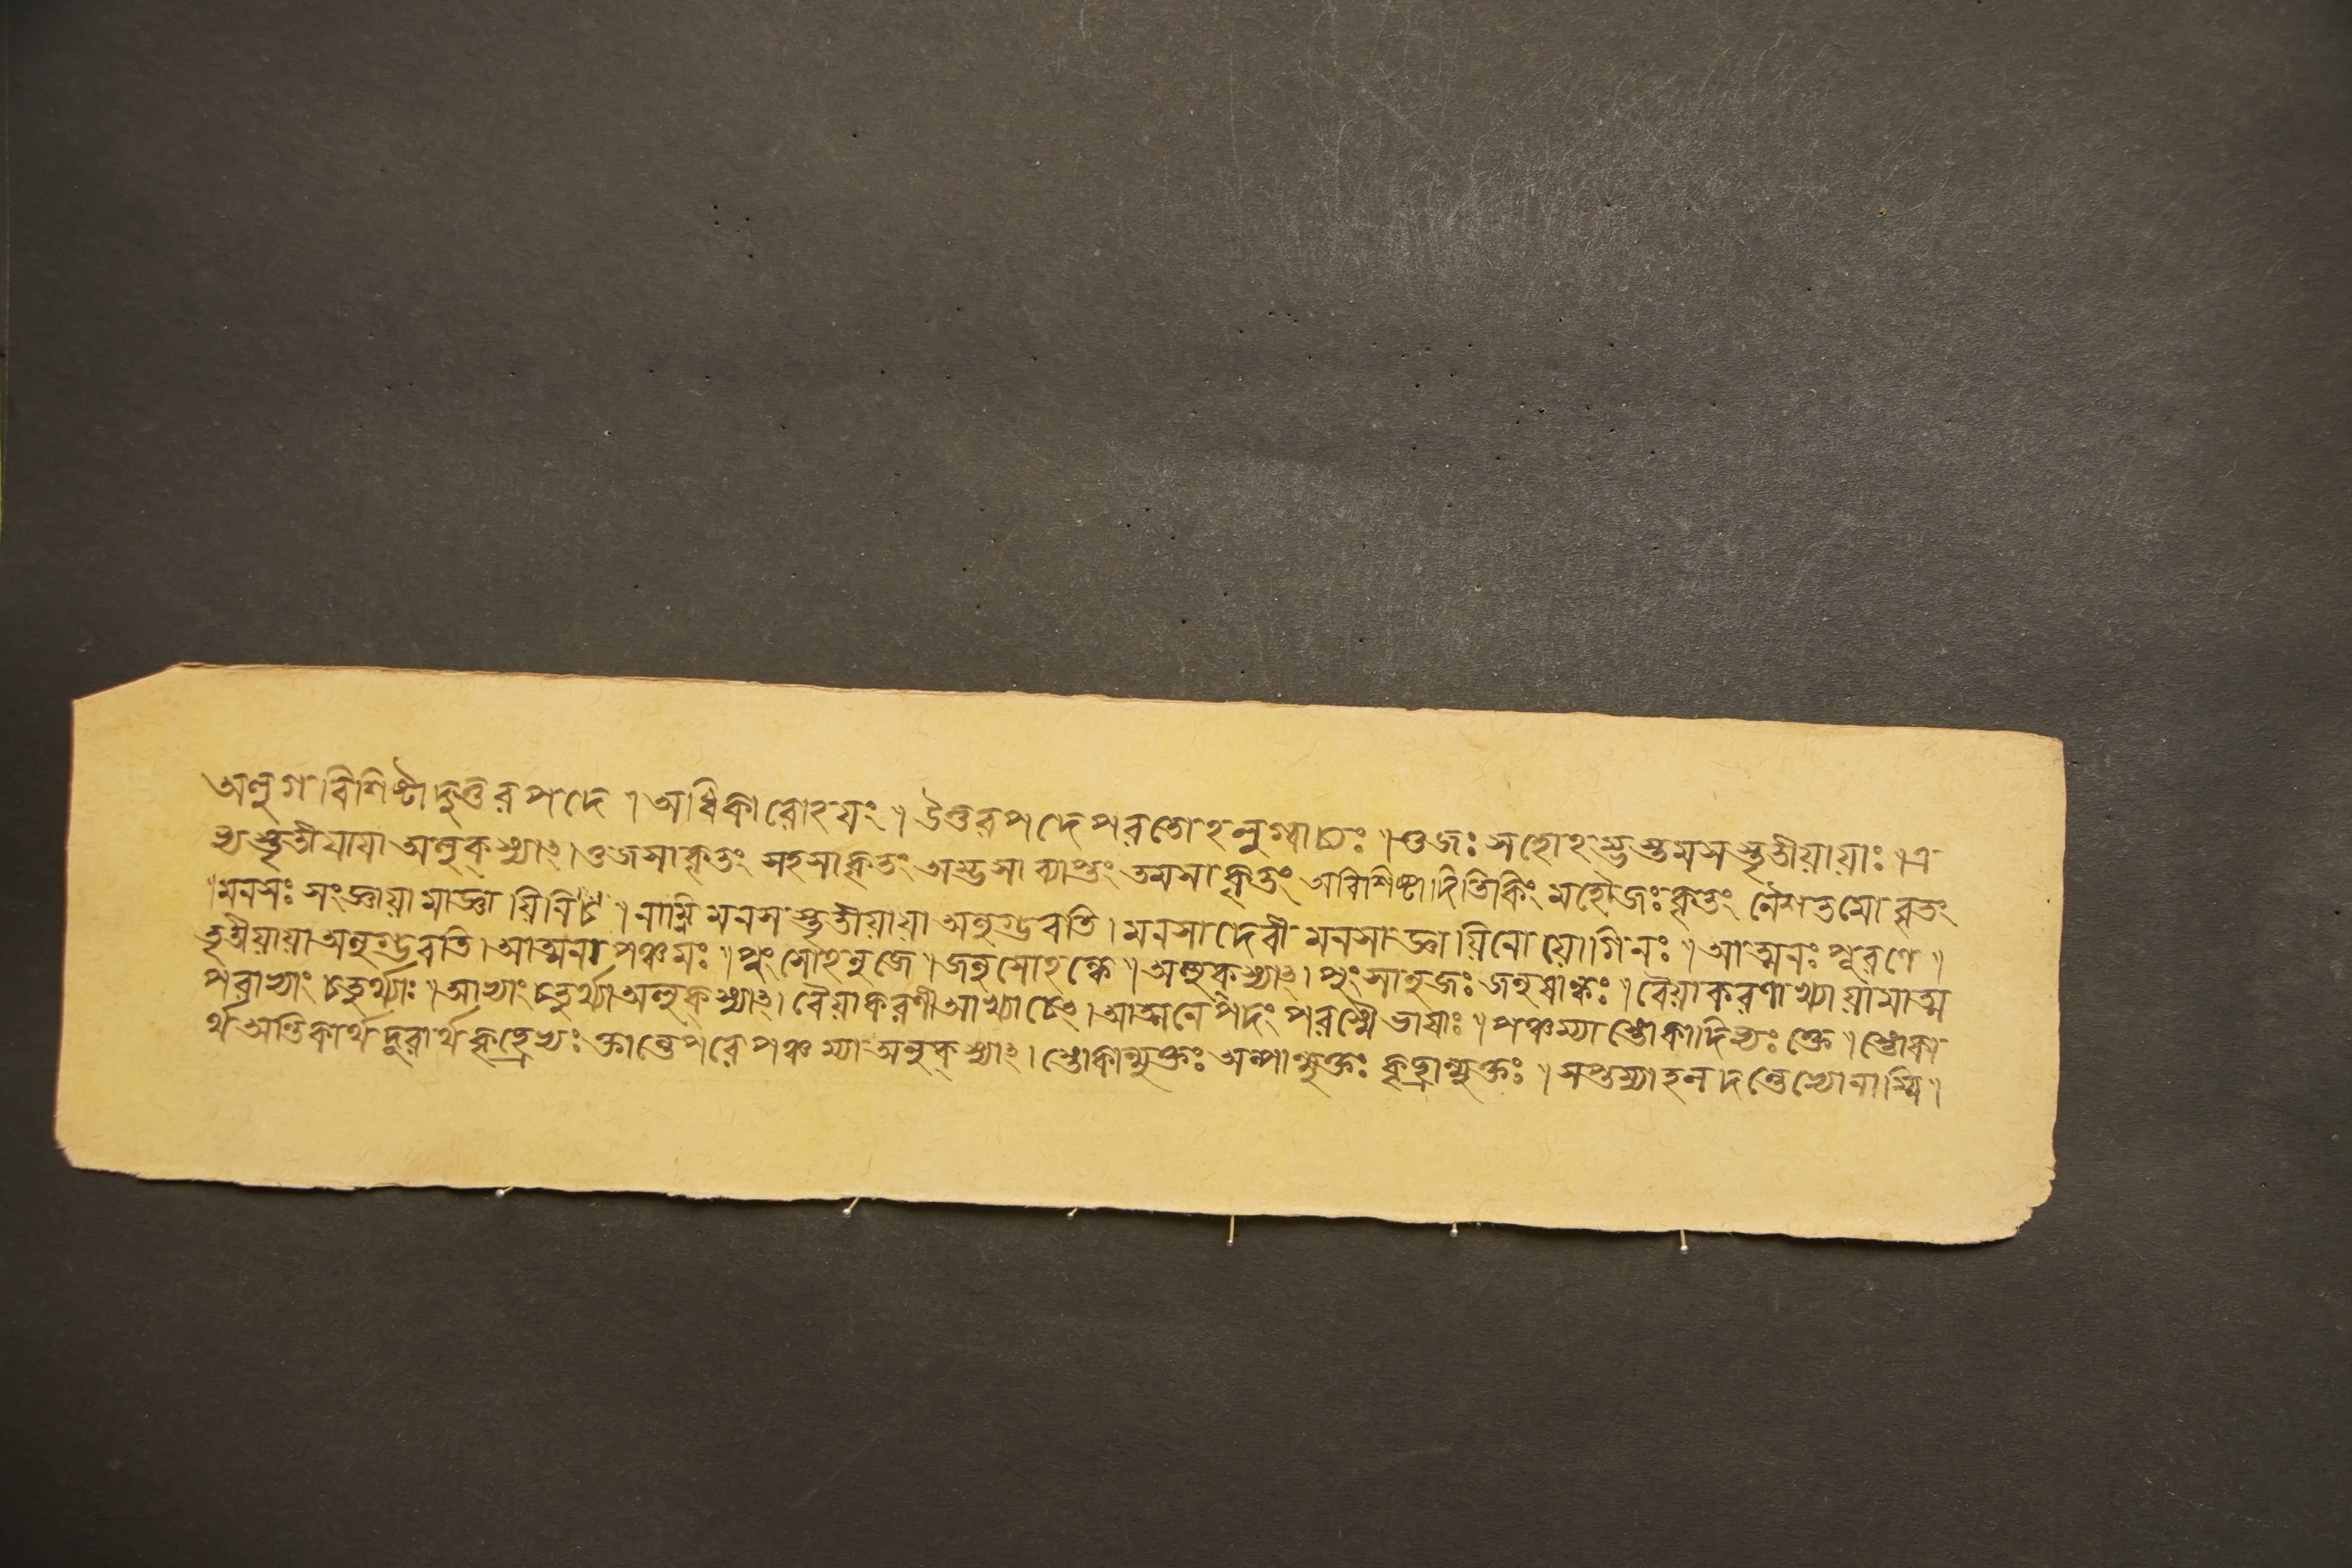 অলুগ বিশিষ্টাদুত্তরপদে । অধিকারোঽয়ং ॥ উত্তরপদে পরতোঽলুগ্বাচ্যঃ ॥ ওজঃ সহোঽম্ভস্তমসস্তৃতীয়ায়াঃ ॥ এ
ভ্যস্তৃতীয়ায়া অলুক্ স্যাৎ । ওজসাকৃতং সহসাকৃতং অম্ভসা ব্যাপ্তং তমসাকৃতং অবিশিষ্টাদিতিকিং মহৌজঃকৃতং নৈশতমোবৃতং
॥ মনসঃ সংজ্ঞায়ামাজ্ঞায়িনিচ ॥ নাম্নি মনসস্তৃতীয়ায়া অলুগ্ভবতি । মনসাদেবী মনসাজ্ঞায়িনো যোগিনঃ ॥ আত্মনঃ পূরণে ॥
তৃতীয়ায়া অলুগ্ভবতি । আত্মনা পঞ্চমঃ ॥ পুংসোঽনুজে ॥ জনুষোঽন্ধে ॥ অলুক্ স্যাৎ । পুংসানুজঃ জনুষান্ধঃ ॥ বৈয়াকরণাখ্যায়ামাত্ম
পরাভ্যাং চতুর্থ্যাঃ ॥ আভ্যাং চতুর্থ্যা অলুক্ স্যাৎ । বৈয়াকরণী আখ্যা চেৎ । আত্মনেপদং পরস্মৈভাষাঃ ॥ পঞ্চম্যা স্তোকাদিভ্যঃ ক্তে ॥ স্তোকা
র্থ অন্তিকার্থ দূরার্থ কৃচ্ছ্রেভ্যঃ ক্তান্তে পরে পঞ্চম্যা অলুক্ স্যাৎ । স্তোকান্মুক্তঃ অল্পান্মুক্তঃ কৃচ্ছ্রান্মুক্তঃ ॥ সপ্তম্যা হলদন্তেভ্যো নাম্নি ।